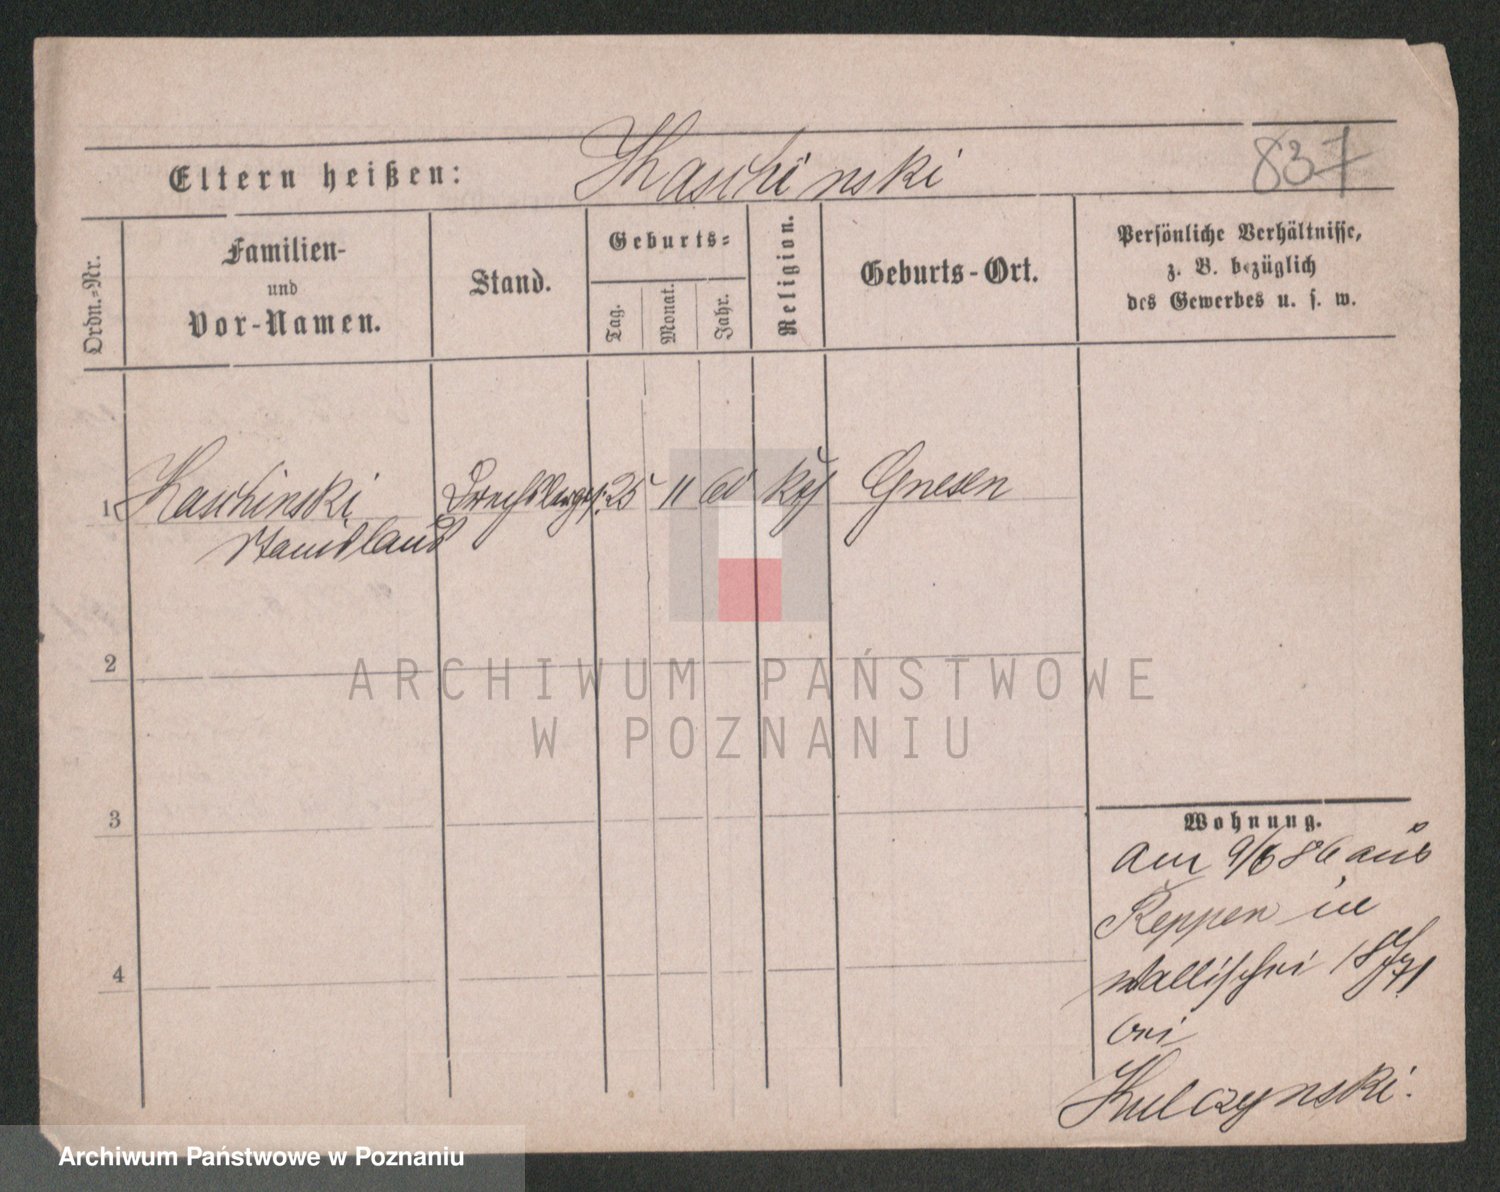 Eltern heißen: Kaschinski
837
Ordn.-Nr.
Familien-
und
Vor-Namen.
Stand.
Geburts-
Tag.
Monat.
Jahr.
Religion.
Geburts-Ort.
Persönliche Verhältnisse,
z. B. bezüglich
des Gewerbes u. s. w.
1 Kaschinski Drechslerges. 25 11 60 kth Gnesen
Stanislaus
2
3
4
Wohnung.
Am 9/6 86 aus
Reppen in
Wallischei
bei
Kulczynski.
ARCHIWUM PAŃSTWOWE
W POZNANIU
Archiwum Państwowe w Poznaniu